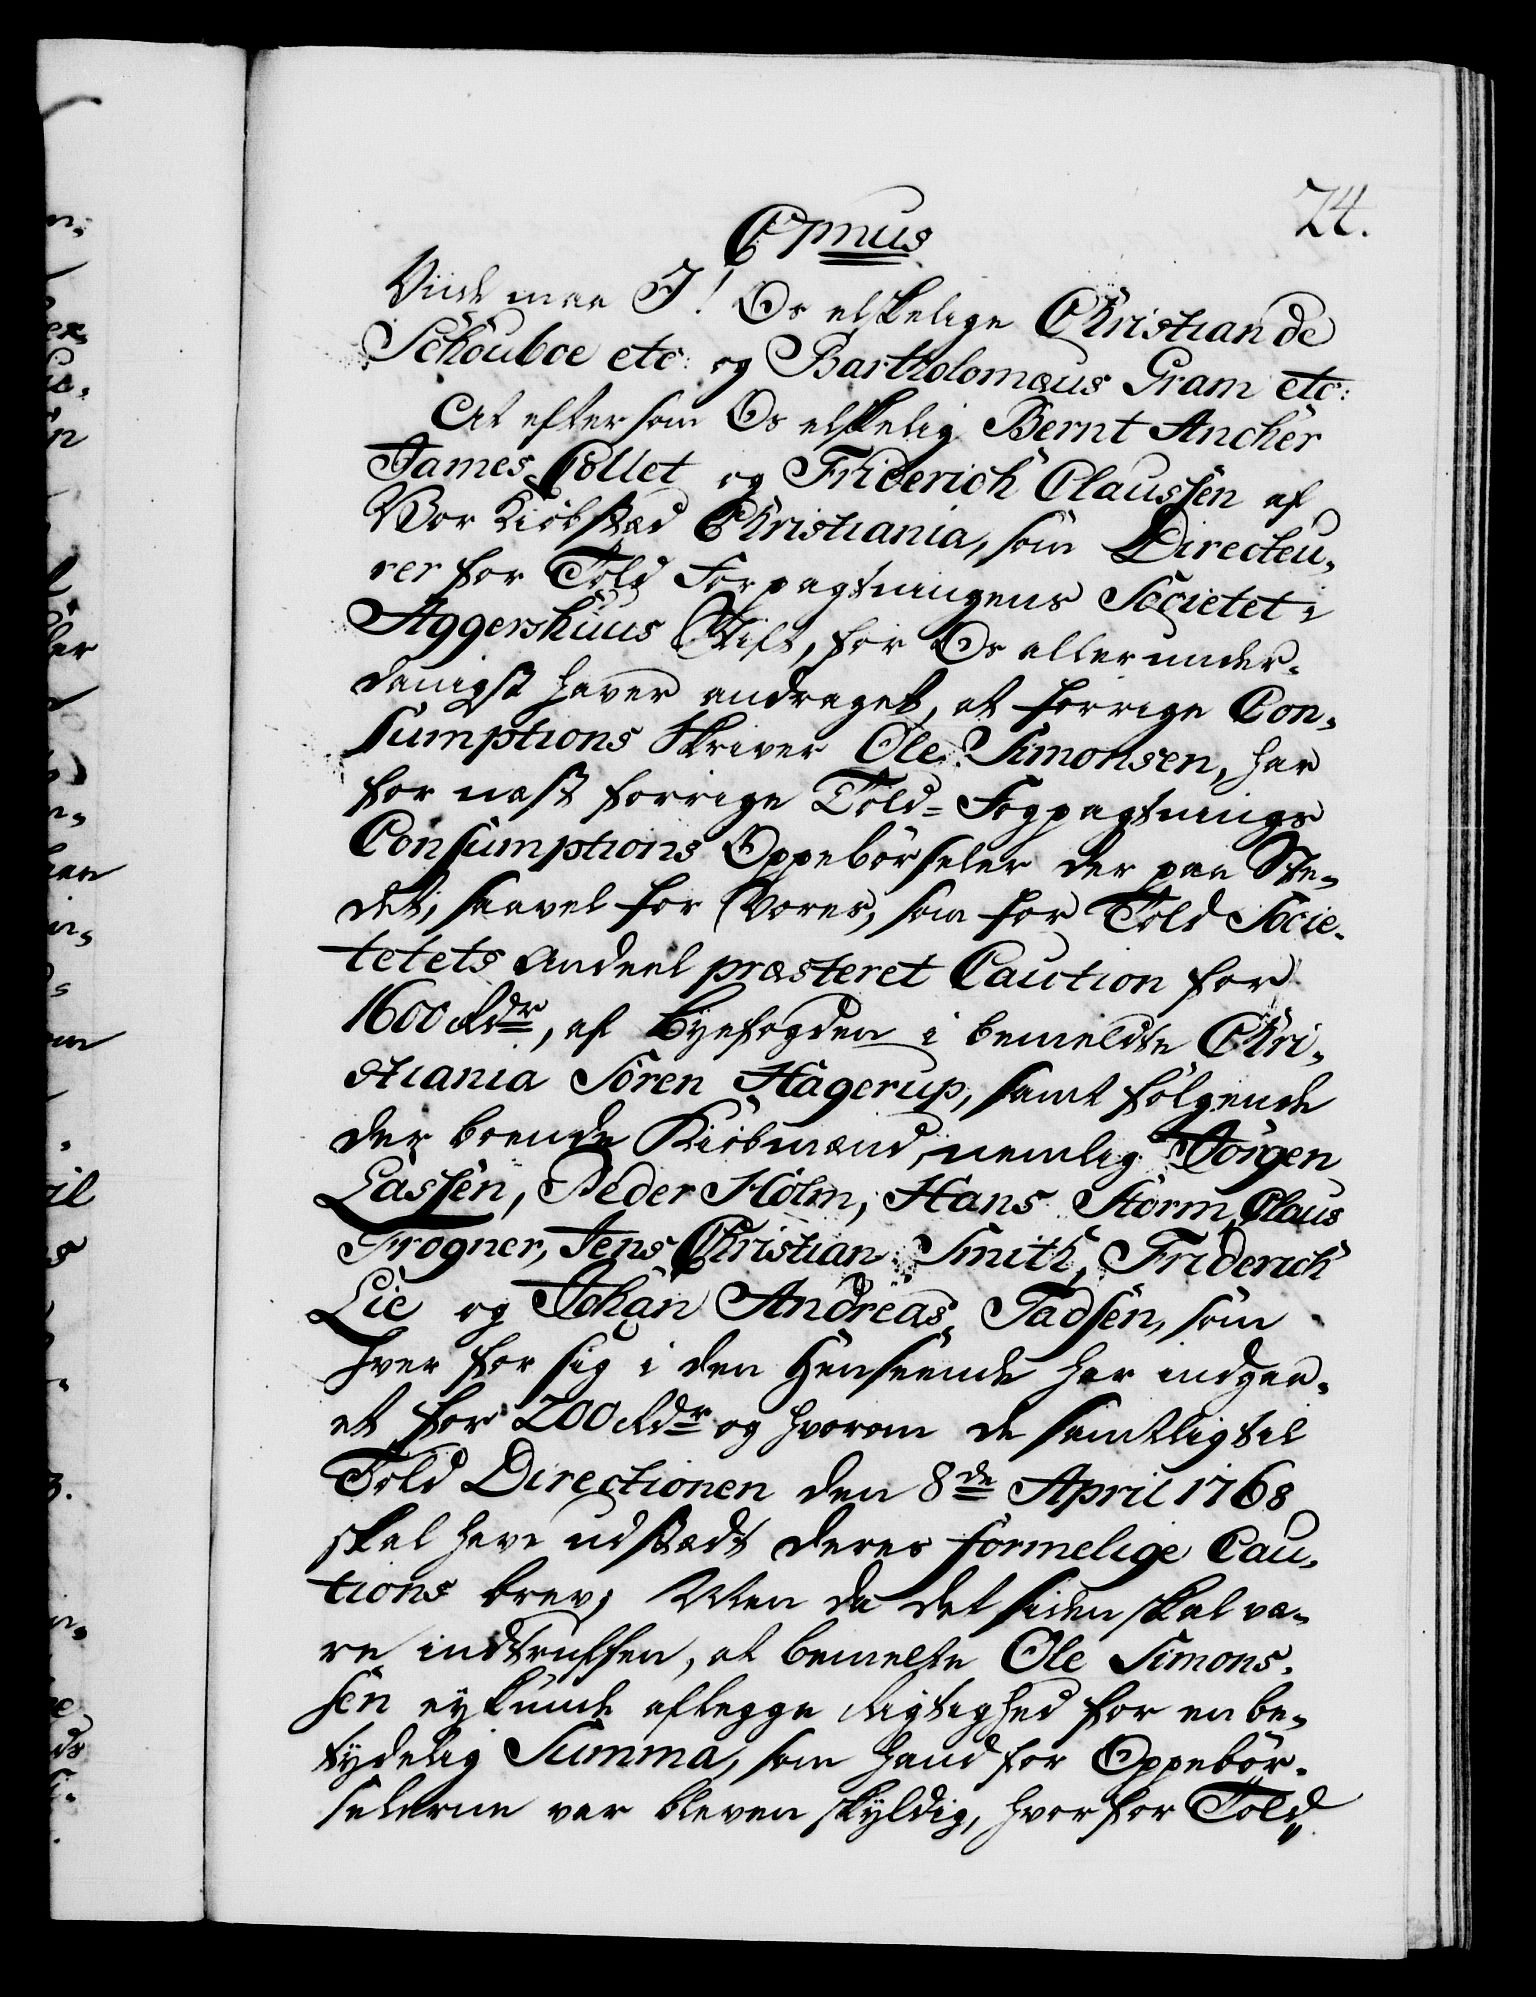 74.
C7mus
Viide maa I! Os elskelige Christian de
Schouboe etc: og Bartholomæus Gram etc:
At eftersom Os elskelig Bernt Ancher
James Collet og Friderich Claussen af
Vor Kiöbstæd Christiania, som Directeu,
rer for Told Forpagtningens Societet i
Aggershuus Stift, for Os allerunder-
danigst haver andraget, at forrige Con,
sumptions Skriver Ole Simonsen, har
for nast forrige Told-Forpagtnings
Consumptions Oppebörseler der paa Ste,
det, saavel for Vores, som for Told Socie-
tetets Andeel præsteret Caution for
1600 Rdr, af Byefogden i bemeldte Chri,
stiania Sören Hagerup, samt fölgende
der boende Kiöbmænd, nemlig Jörgen
Lassen, Peder Holm, Hans Storm, Claus
Frogner, Jens Christian Smith, Friderich
Lie og Johan Andreas Tadsen, som
hver for sig i den Henseende har indgaa,
et for 200 Rdr og hvorom de samtlig til
Told Directionen den 8de April 1768
skal have udstædt deres formelige Cau,
tions brev; Men da det siden skal væ,
re indtruffen, at bemelte Ole Simons,
sen ey kunde aflegge Rigtighed for en be,
tydelig Summa, som hand for Oppebör-
selerne var bleven skyldig, hvorfor Told